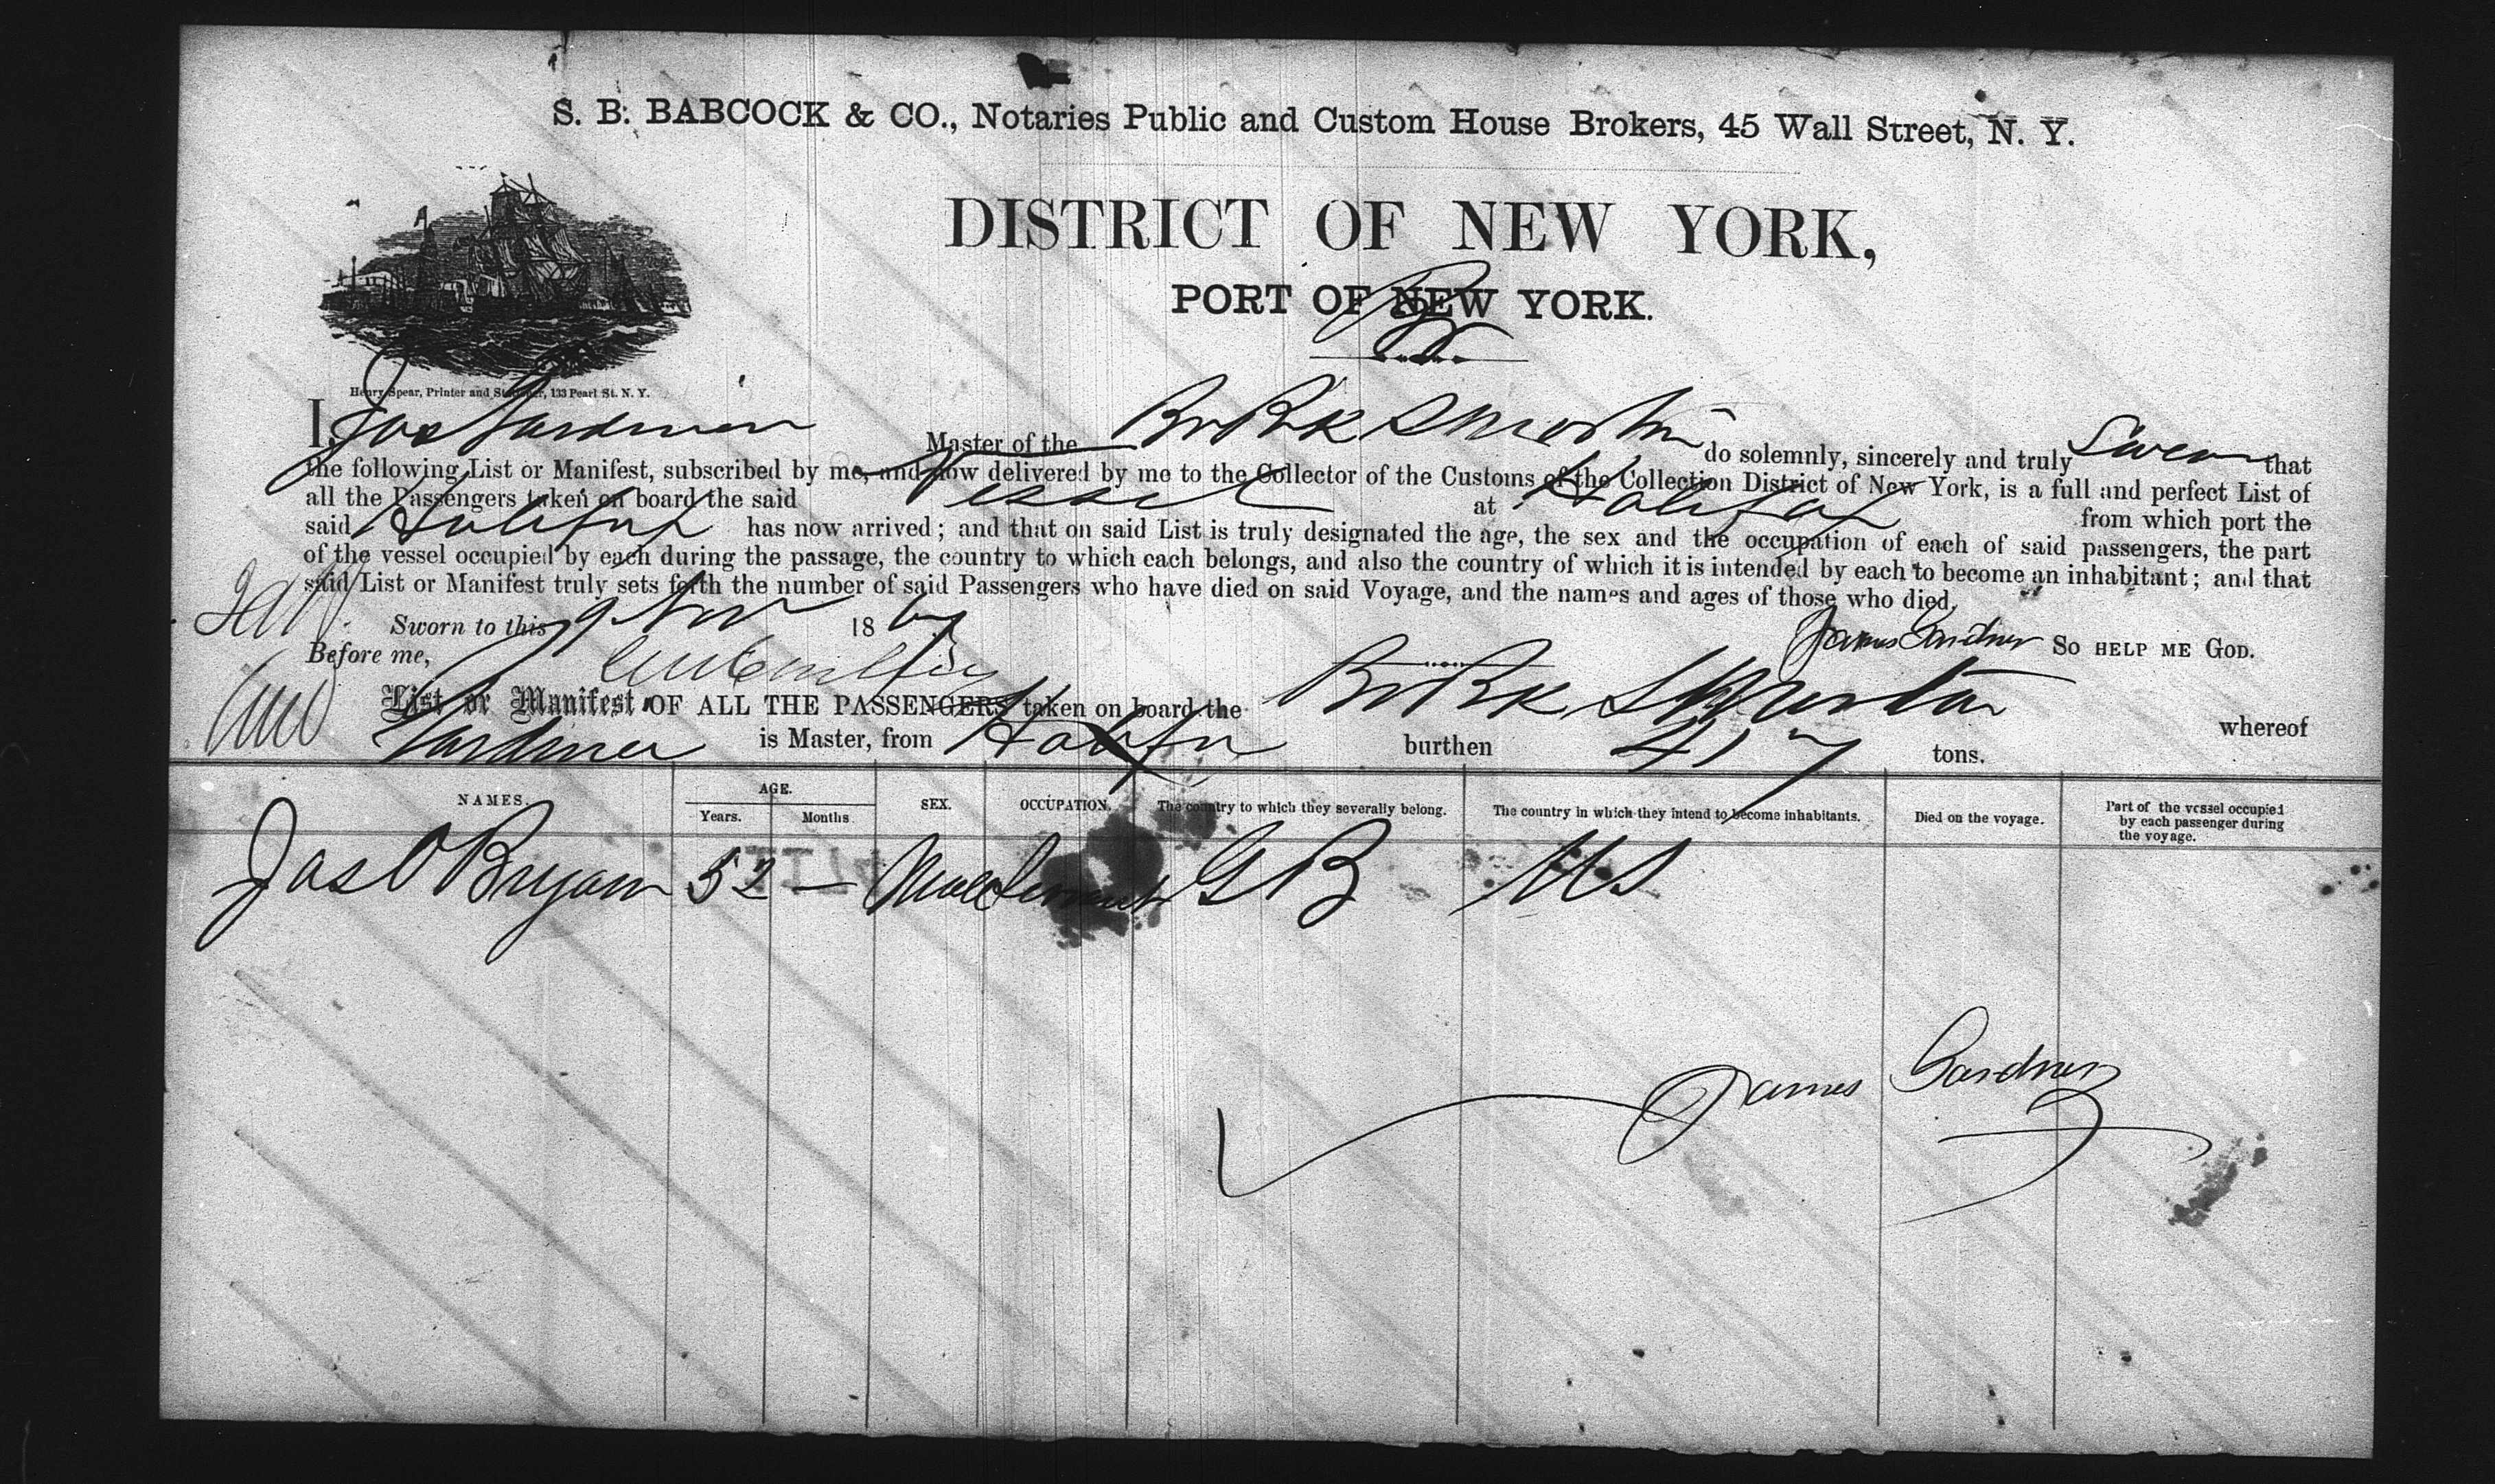 S. B. BABCOCK & CO., Notaries Public and Custom House Brokers, 45 Wall Street, N. Y.
DISTRICT OF NEW YORK,
PORT OF NEW YORK.
Henry Spear, Printer and Stationer, 133 Pearl St. N. Y.
I, Jas Gardner Master of the Br Bk do solemnly, sincerely and truly Swear that
the following List or Manifest, subscribed by me, and now delivered by me to the Collector of the Customs of the Collection District of New York, is a full and perfect List of
all the Passengers taken on board the said Vessel at Halifax from which port the
said Halifax has now arrived; and that on said List is truly designated the age, the sex and the occupation of each of said passengers, the part
of the vessel occupied by each during the passage, the country to which each belongs, and also the country of which it is intended by each to become an inhabitant; and that
said List or Manifest truly sets forth the number of said Passengers who have died on said Voyage, and the names and ages of those who died.
Sworn to this 9 Nov 186 James Gardner SO HELP ME GOD.
Before me,
List or Manifest OF ALL THE PASSENGERS taken on board the Br Bk whereof
Gardner is Master, from Halifax burthen 417 tons.
NAMES. AGE. Years. Months SEX. OCCUPATION. The country to which they severally belong. The country in which they intend to become inhabitants. Died on the voyage. Part of the vessel occupied by each passenger during the voyage.
Jas O Bryan 52 — Male Servant G B U S
James Gardner